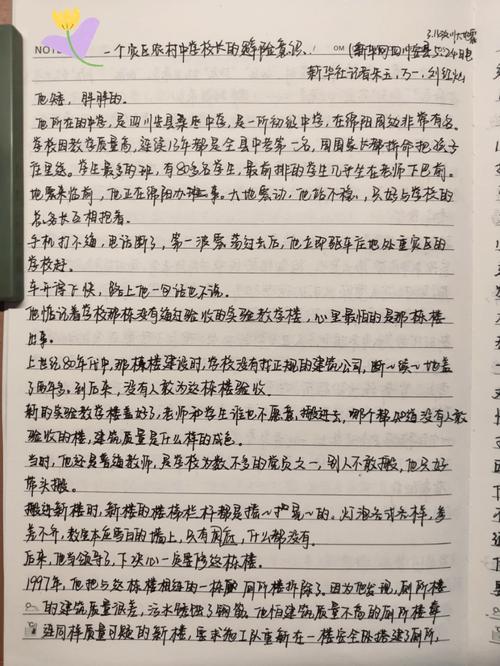 3.15汶川大地震
NOTE 一个灾区农村中学校长的避险意识、 OM (新华网四川安县5.24日电
新华社记者朱玉、万一、刘红灿
他矮,胖胖的。
他所在的中学,是四川安县桑枣中学,是一所初级中学,在绵阳周边非常有名。
学校因教学质量高,连续13年都是全县中考第一名,周围家长都拼命把孩子
往里送。学生最多的班,有80多名学生,最前排的学生几乎坐在老师下巴前。
地震来临前,他正在绵阳办事。大地震动,他站不稳,只好与学校的
总务长互相抱着。
手机打不通,电话断了,第一波震荡过去后,他立即驱车往地处重灾区的
学校赶。
车开得飞快,路上他一句话也不说。
他惦记着学校那栋没有通过验收的实验教学楼,心里最怕的是那栋楼
出事。
上世纪80年代中,那栋楼建设时,学校没有找正规的建筑公司,断~续~地盖
了两年多。到后来,没有人敢为这栋楼验收。
新的实验教学楼盖好了,老师和学生谁也不愿意搬进去,哪个都知道没有人敢
验收的楼,建筑质量是什么样的成色。
当时,他还是普通教师,是学校为数不多的党员之一,别人不敢搬,他只好
带头搬。
搬进新楼时,新楼的楼梯栏杆都是摇~晃~的。灯泡各式各样,参
差不齐,教室本应雪白的墙上,只有泥巴,什么都没有。
后来,他当领导了,下决心一定要修这栋楼。
1997年,他把与这栋楼相连的一栋厕所楼拆除了。因为他发现,厕所楼
的建筑质量很差,污水锈蚀了钢筋。他怕建筑质量不高的厕所楼牵
连同样质量可疑的新楼,要求施工队重新在一楼安全处搭建了厕所,